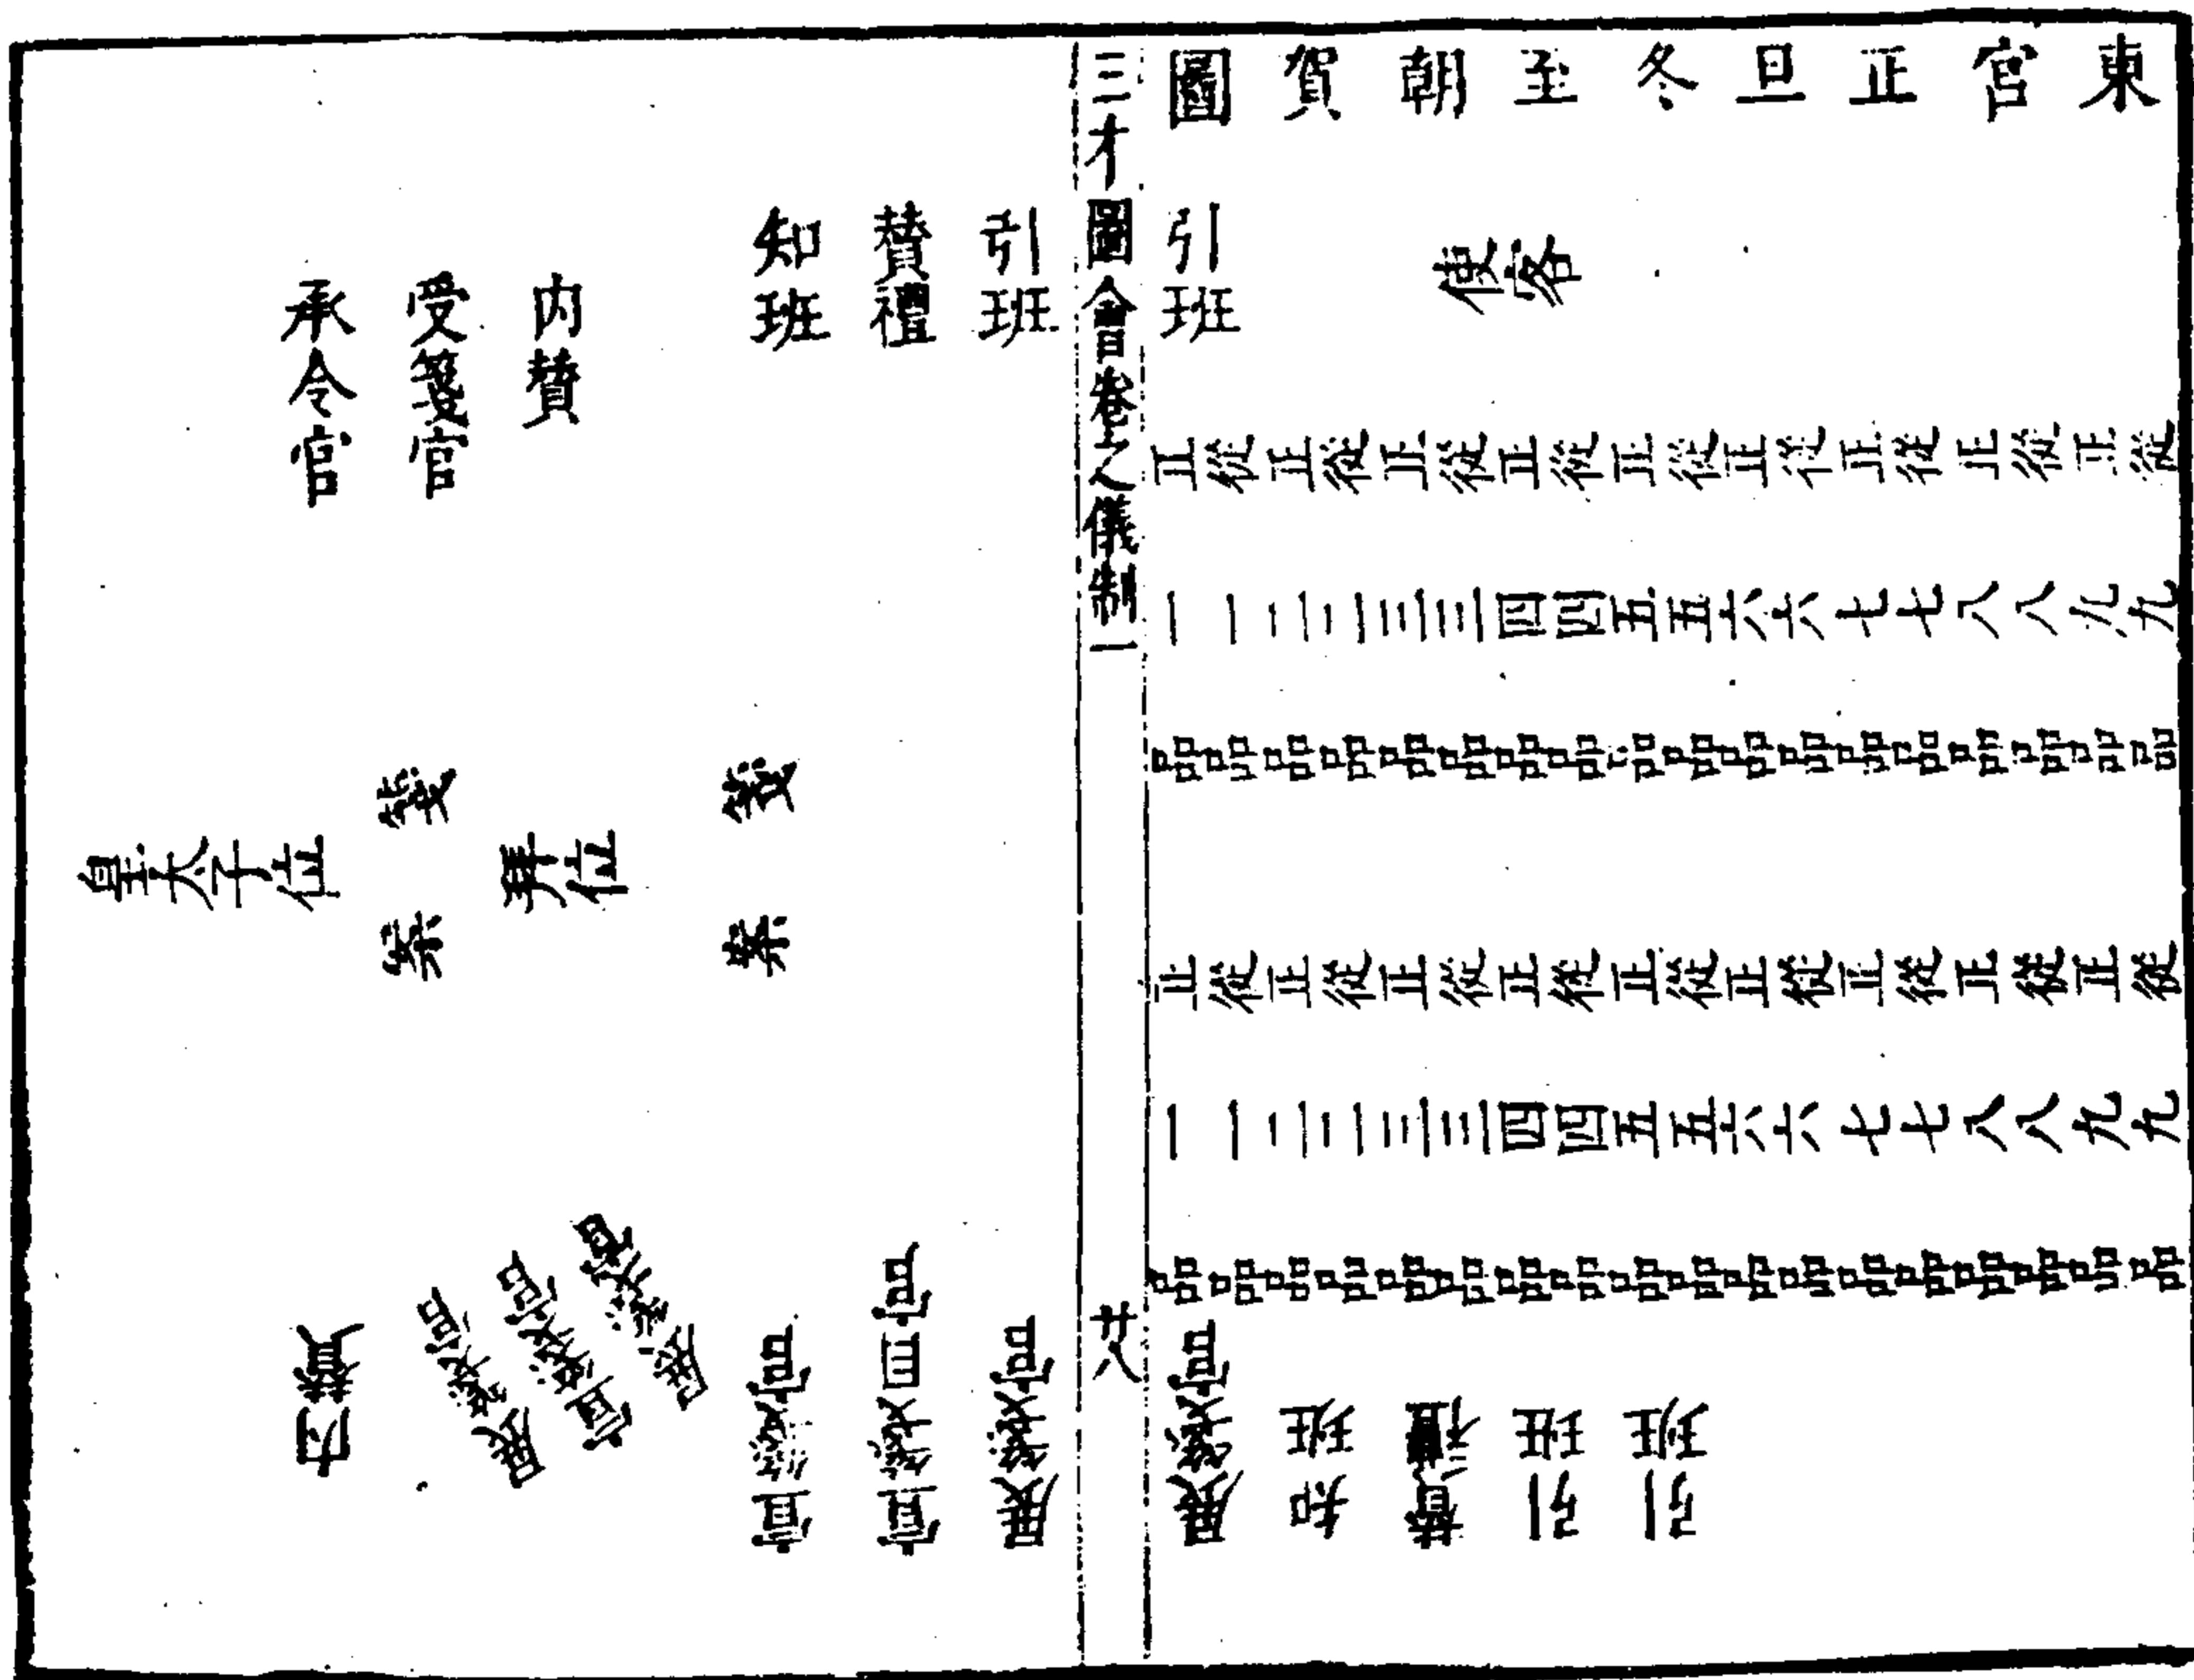 東宮正旦冬至朝賀圖
使客
引班
正一品
從一品
正二品
從二品
正三品
從三品
正四品
從四品
正五品
從五品
正六品
從六品
正七品
從七品
正八品
從八品
正九品
從九品
正一品
從一品
正二品
從二品
正三品
從三品
正四品
從四品
正五品
從五品
正六品
從六品
正七品
從七品
正八品
從八品
正九品
從九品
引班
引班
贊禮
知班
展箋官
三才圖會卷之儀制一
廿八
引班
贊禮
知班
内贊
受箋官
承令官
箋案
拜位
箋案
皇太子位
展箋官
宣箋目官
宣箋官
展箋官
宣箋官
展箋官
内贊